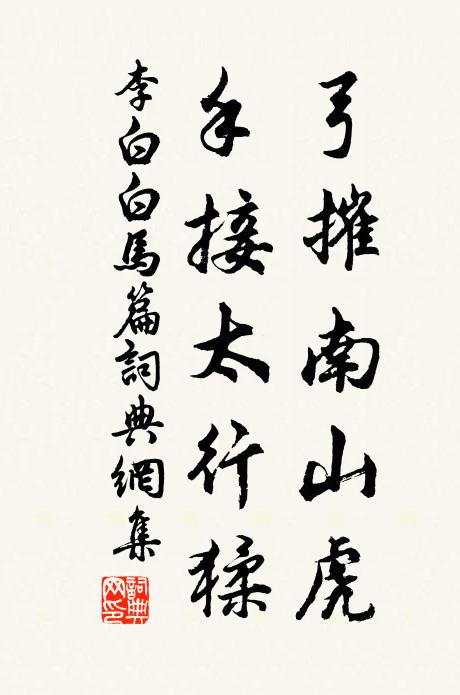 弓摧南山虎
手接太行猱
李白白馬篇詞典網集
詞典網印